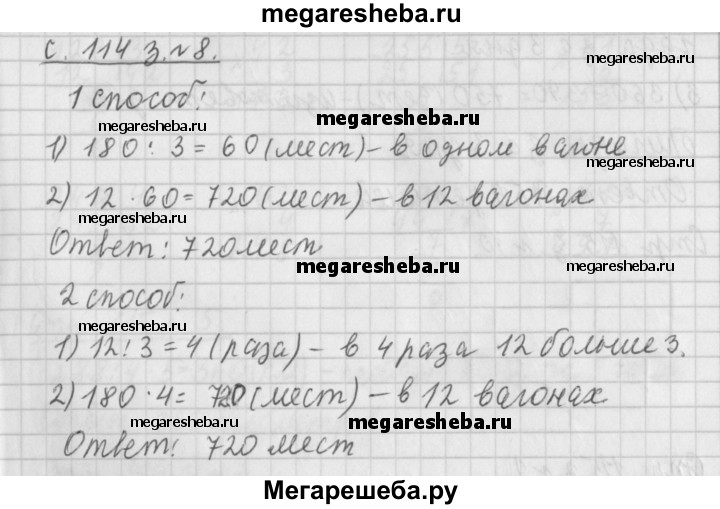 megaresheba.ru
с. 114 з. №8.
megaresheba.ru
1 способ:
megaresheba.ru
megaresheba.ru
1) 180 : 3 = 60 (мест) – в одном вагоне
megaresheba.ru
2) 12 · 60 = 720 (мест) – в 12 вагонах
megaresheba.ru
Ответ: 720 мест
megaresheba.ru
megaresheba.ru
2 способ:
megaresheba.ru
1) 12 : 3 = 4 (раза) – в 4 раза 12 больше 3.
2) 180 · 4 = 720 (мест) – в 12 вагонах
megaresheba.ru
megaresheba.ru
Ответ: 720 мест
megaresheba.ru
Мегарешеба.ру